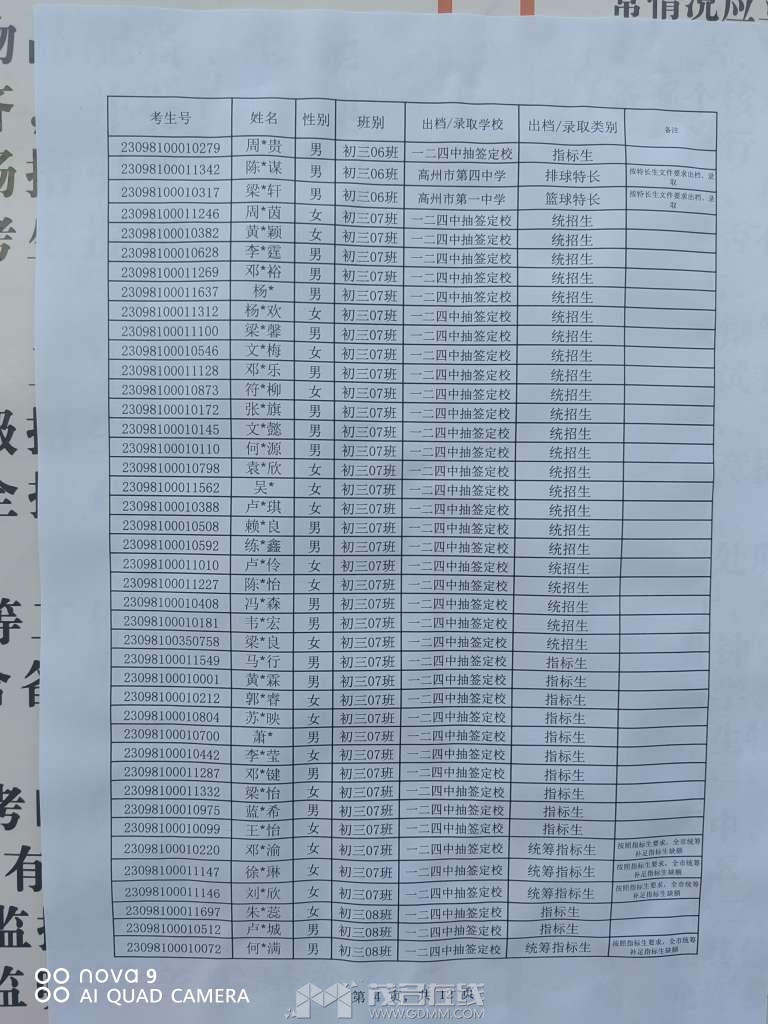 常情况应
考生号 姓名 性别 班别 出档/录取学校 出档/录取类别 备注
23098100010279 周*贵 男 初三06班 一二四中抽签定校 指标生
23098100011342 陈*谋 男 初三06班 高州市第四中学 排球特长 按特长生文件要求出档、录取
23098100010317 梁*轩 男 初三06班 高州市第一中学 篮球特长 按特长生文件要求出档、录取
23098100011246 周*茵 女 初三07班 一二四中抽签定校 统招生
23098100010382 黄*颖 女 初三07班 一二四中抽签定校 统招生
23098100010628 李*霆 男 初三07班 一二四中抽签定校 统招生
23098100011269 邓*裕 男 初三07班 一二四中抽签定校 统招生
23098100011637 杨* 男 初三07班 一二四中抽签定校 统招生
23098100011312 杨*欢 女 初三07班 一二四中抽签定校 统招生
23098100011100 梁*馨 男 初三07班 一二四中抽签定校 统招生
23098100010546 文*梅 女 初三07班 一二四中抽签定校 统招生
23098100011128 邓*乐 男 初三07班 一二四中抽签定校 统招生
23098100010873 符*柳 女 初三07班 一二四中抽签定校 统招生
23098100010172 张*旗 男 初三07班 一二四中抽签定校 统招生
23098100010145 文*懿 男 初三07班 一二四中抽签定校 统招生
23098100010110 何*源 男 初三07班 一二四中抽签定校 统招生
23098100010798 袁*欣 女 初三07班 一二四中抽签定校 统招生
23098100011562 吴* 女 初三07班 一二四中抽签定校 统招生
23098100010388 卢*琪 女 初三07班 一二四中抽签定校 统招生
23098100010508 赖*良 男 初三07班 一二四中抽签定校 统招生
23098100010592 练*鑫 男 初三07班 一二四中抽签定校 统招生
23098100011010 卢*伶 女 初三07班 一二四中抽签定校 统招生
23098100011227 陈*怡 女 初三07班 一二四中抽签定校 统招生
23098100010408 冯*森 男 初三07班 一二四中抽签定校 统招生
23098100010181 韦*宏 男 初三07班 一二四中抽签定校 统招生
23098100350758 梁*良 女 初三07班 一二四中抽签定校 统招生
23098100011549 马*行 男 初三07班 一二四中抽签定校 指标生
23098100010001 黄*霖 男 初三07班 一二四中抽签定校 指标生
23098100010212 郭*睿 女 初三07班 一二四中抽签定校 指标生
23098100010804 苏*映 女 初三07班 一二四中抽签定校 指标生
23098100010700 萧* 男 初三07班 一二四中抽签定校 指标生
23098100010442 李*莹 女 初三07班 一二四中抽签定校 指标生
23098100011287 邓*键 男 初三07班 一二四中抽签定校 指标生
23098100011332 梁*怡 女 初三07班 一二四中抽签定校 指标生
23098100010975 蓝*希 男 初三07班 一二四中抽签定校 指标生
23098100010099 王*怡 女 初三07班 一二四中抽签定校 指标生
23098100010220 邓*渝 女 初三07班 一二四中抽签定校 统筹指标生 按照指标生要求，全市统筹补足指标生缺额
23098100011147 徐*琳 女 初三07班 一二四中抽签定校 统筹指标生 按照指标生要求，全市统筹补足指标生缺额
23098100011146 刘*欣 女 初三07班 一二四中抽签定校 统筹指标生 按照指标生要求，全市统筹补足指标生缺额
23098100011697 朱*蕊 女 初三08班 一二四中抽签定校 指标生
23098100010512 卢*城 男 初三08班 一二四中抽签定校 指标生
23098100010072 何*满 男 初三08班 一二四中抽签定校 统筹指标生 按照指标生要求，全市统筹补足指标生缺额
第 4 页，共 12 页
nova 9
AI QUAD CAMERA
茂名在线
WWW.GDMM.COM